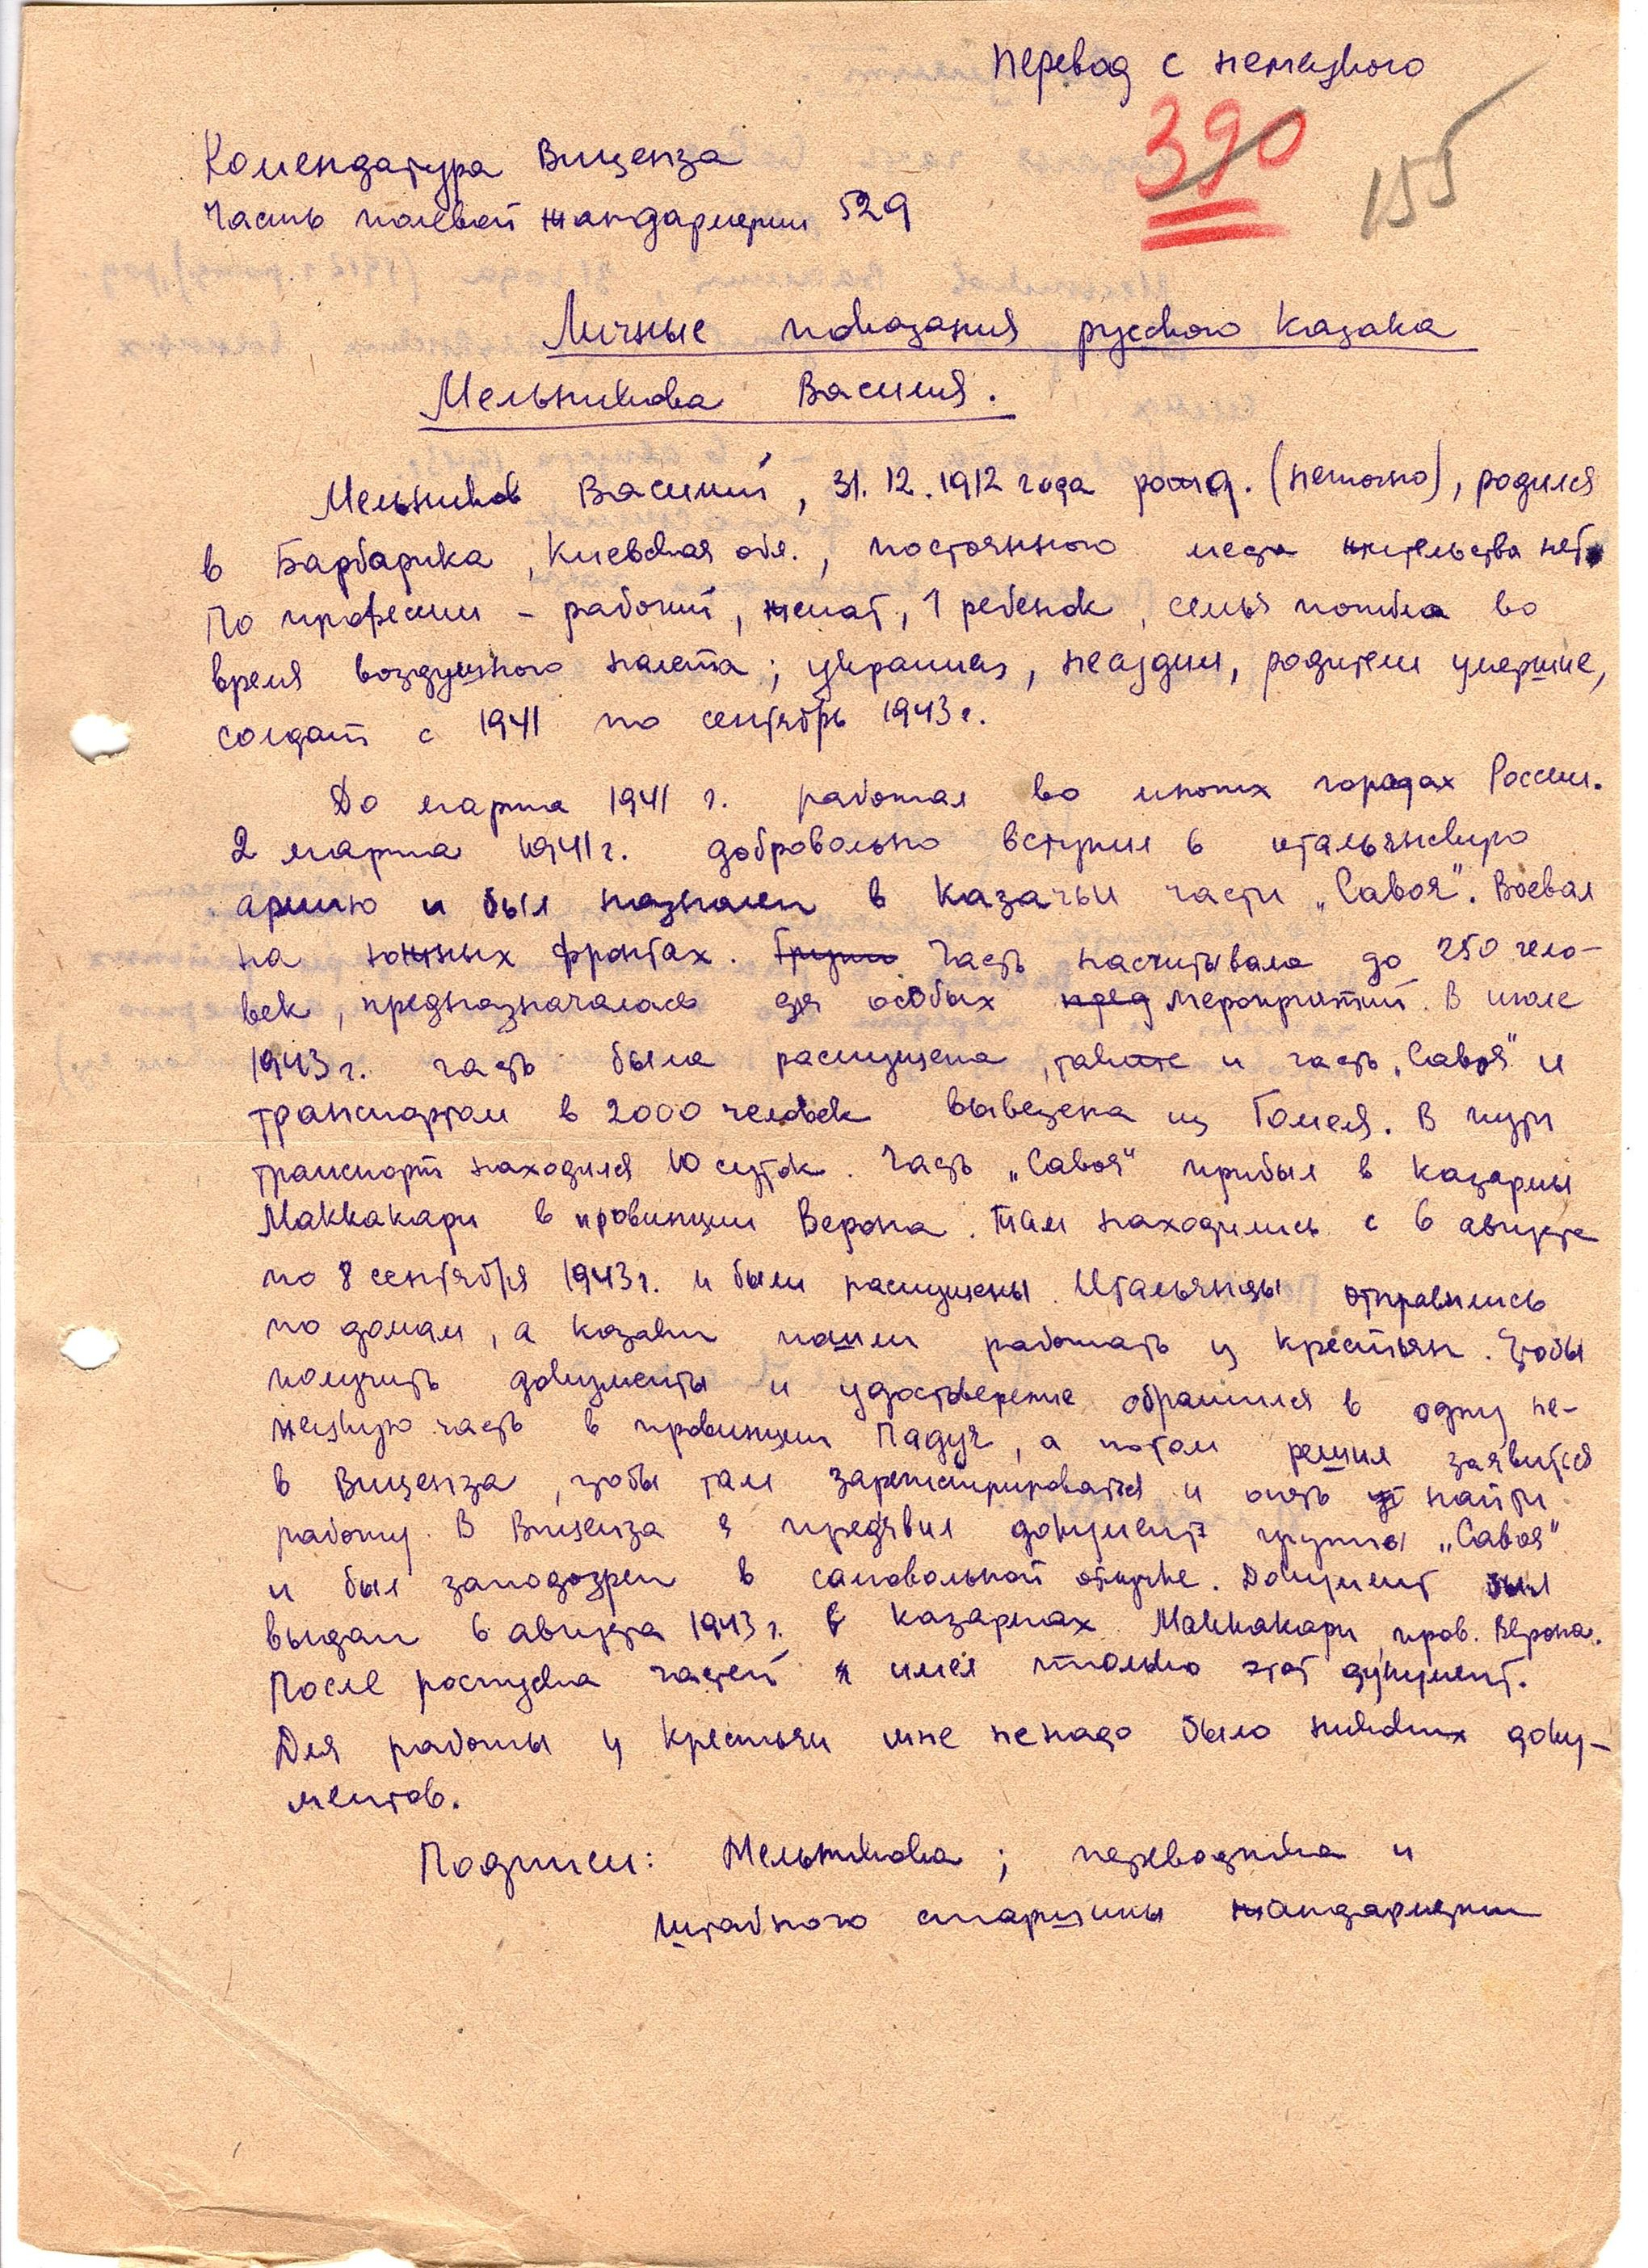 Перевод с немецкого
390
155
Комендатура Виценза
Часть полевой жандармерии 529
Личные показания русского казака
Мельникова Василия.
Мельников Василий, 31.12.1912 года рожд. (неточно), родился
в Барбарика, Киевская обл., постоянного места жительства нет.
По профессии - рабочий, женат, 1 ребенок, семья погибла во
время воздушного налета; украинец, несудим, родители умершие,
солдат с 1941 по сентябрь 1943 г.
До марта 1941 г. работал во многих городах России.
2 марта 1941 г. добровольно вступил в итальянскую
армию и был назначен в казачьи части „Савоя". Воевал
на южных фронтах. Групп Часть насчитывала до 250 чело-
век, предназначалась для особых пред мероприятий. В июле
1943 г. часть была распущена, также и часть „Савоя" и
транспортом в 2000 человек вывезена из Гомеля. В пути
транспорт находился 10 суток. Часть „Савоя" прибыл в казармы
Маккакари в провинции Верона. Там находились с 6 августа
по 8 сентября 1943 г. и были распущены. Итальянцы отправились
по домам, а казаки пошли работать у крестьян. Чтобы
получить документы и удостоверение обратился в одну не-
мецкую часть в провинции Падуя, а потом решил заявиться
в Виценза, чтобы там зарегистрироваться и опять найти
работу. В Виценза я предъявил документ группы „Савоя"
и был заподозрен в самовольной отлучке. Документ был
выдан 6 августа 1943 г. в казармах Маккакари, пров. Верона.
После роспуска частей я имел только этот документ.
Для работы у крестьян мне ненадо было никаких доку-
ментов.
Подписи: Мельникова; переводчика и
штабного старшины жандармерии